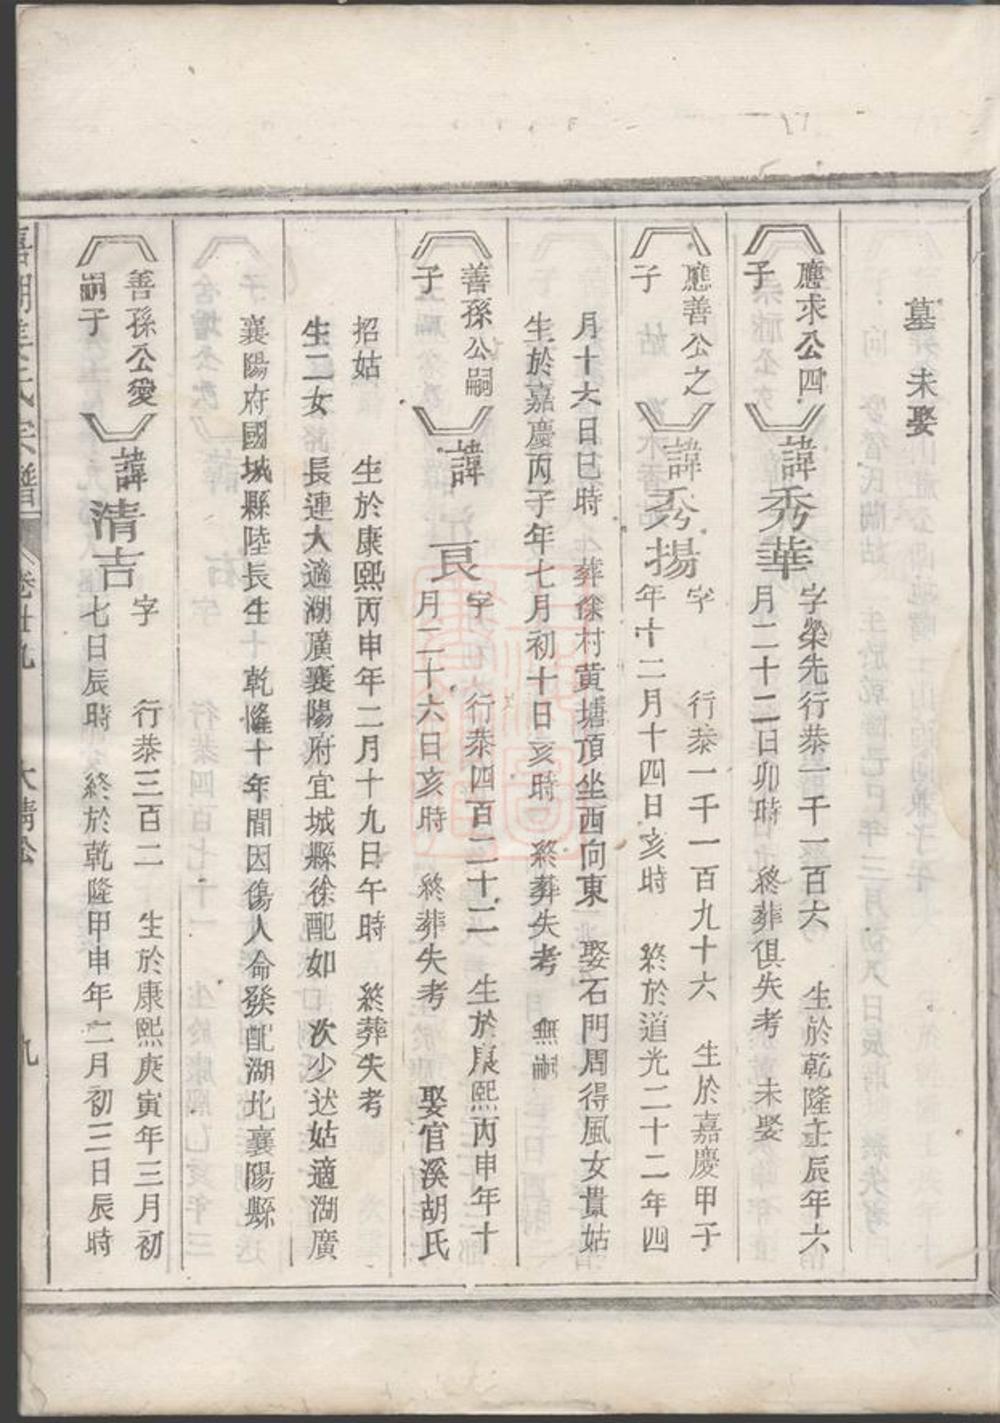 墓 未娶
應求公四
子
諱秀華
字榮先行恭一千一百六 生於乾隆壬辰年六
月二十二日卯時 終葬俱失考 未娶
應善公之
子
諱秀揚
字 行恭一千一百九十六 生於嘉慶甲子
年十二月十四日亥時 終於道光二十二年四
月十六日巳時 葬徐村黄塘頂坐西向東 娶石門周得風女貴姑
生於嘉慶丙子年七月初十日亥時 終葬失考 無嗣
善孫公嗣
子
諱良
字 行恭四百二十二 生於康熙丙申年十
月二十六日亥時 終葬失考 娶官溪胡氏
招姑 生於康熙丙申年二月十九日午時 終葬失考
生二女 長連大適湖廣襄陽府宜城縣徐配如 次少达姑適湖廣
襄陽府國城縣陸長生 乾隆十年間因傷人命發配湖北襄陽縣
善孫公愛
嗣子
諱清吉
字 行恭三百二 生於康熙庚寅年三月初
七日辰時 終於乾隆甲申年二月初三日辰時
卷廿九
九